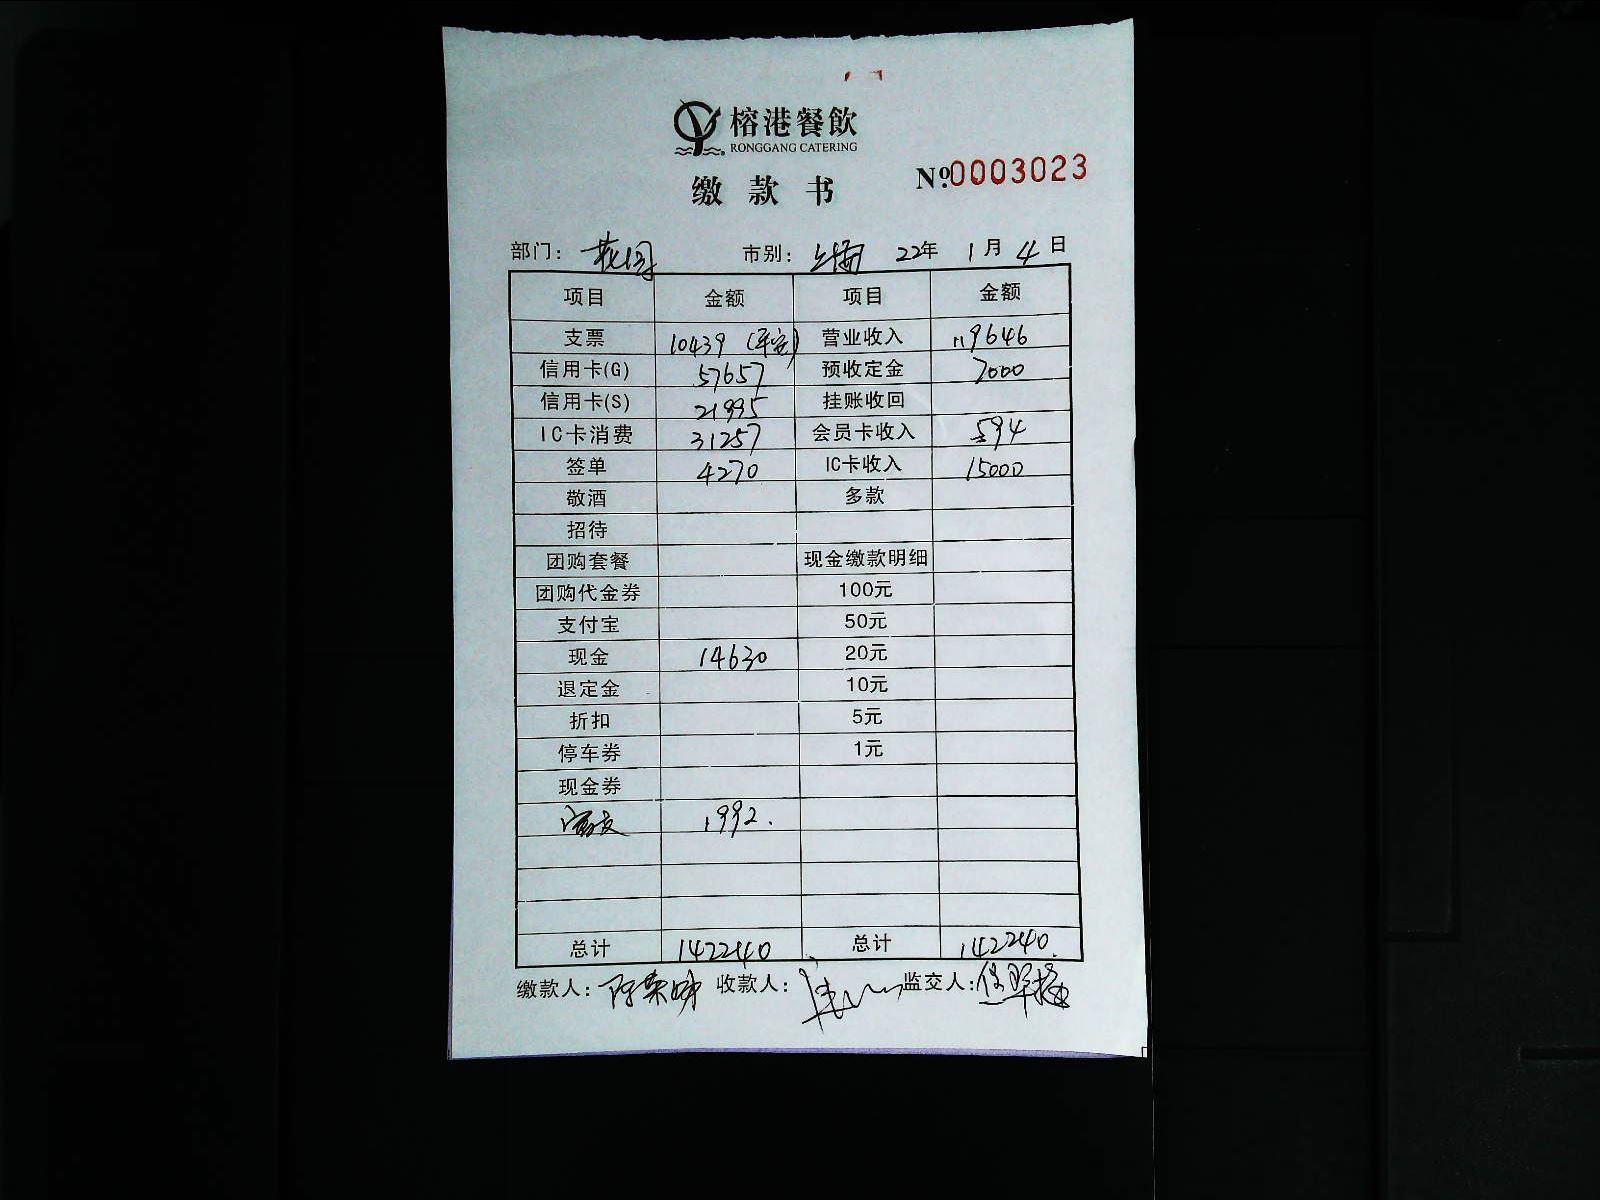 榕港餐飲
RONGGANG CATERING
缴款书
Nº.0003023
部门: 花园 市别: 22年 1月 4日
项目 金额 项目 金额
支票 10439 (平安) 营业收入 119646
信用卡(G) 57657 预收定金 7000
信用卡(S) 21995 挂账收回
IC卡消费 31257 会员卡收入 594
签单 4270 IC卡收入 15000
敬酒 多款
招待
团购套餐 现金缴款明细
团购代金券 100元
支付宝 50元
现金 14630 20元
退定金 10元
折扣 5元
停车券 1元
现金券
1992.
总计 142240 总计 142240.
缴款人: 收款人: 监交人: